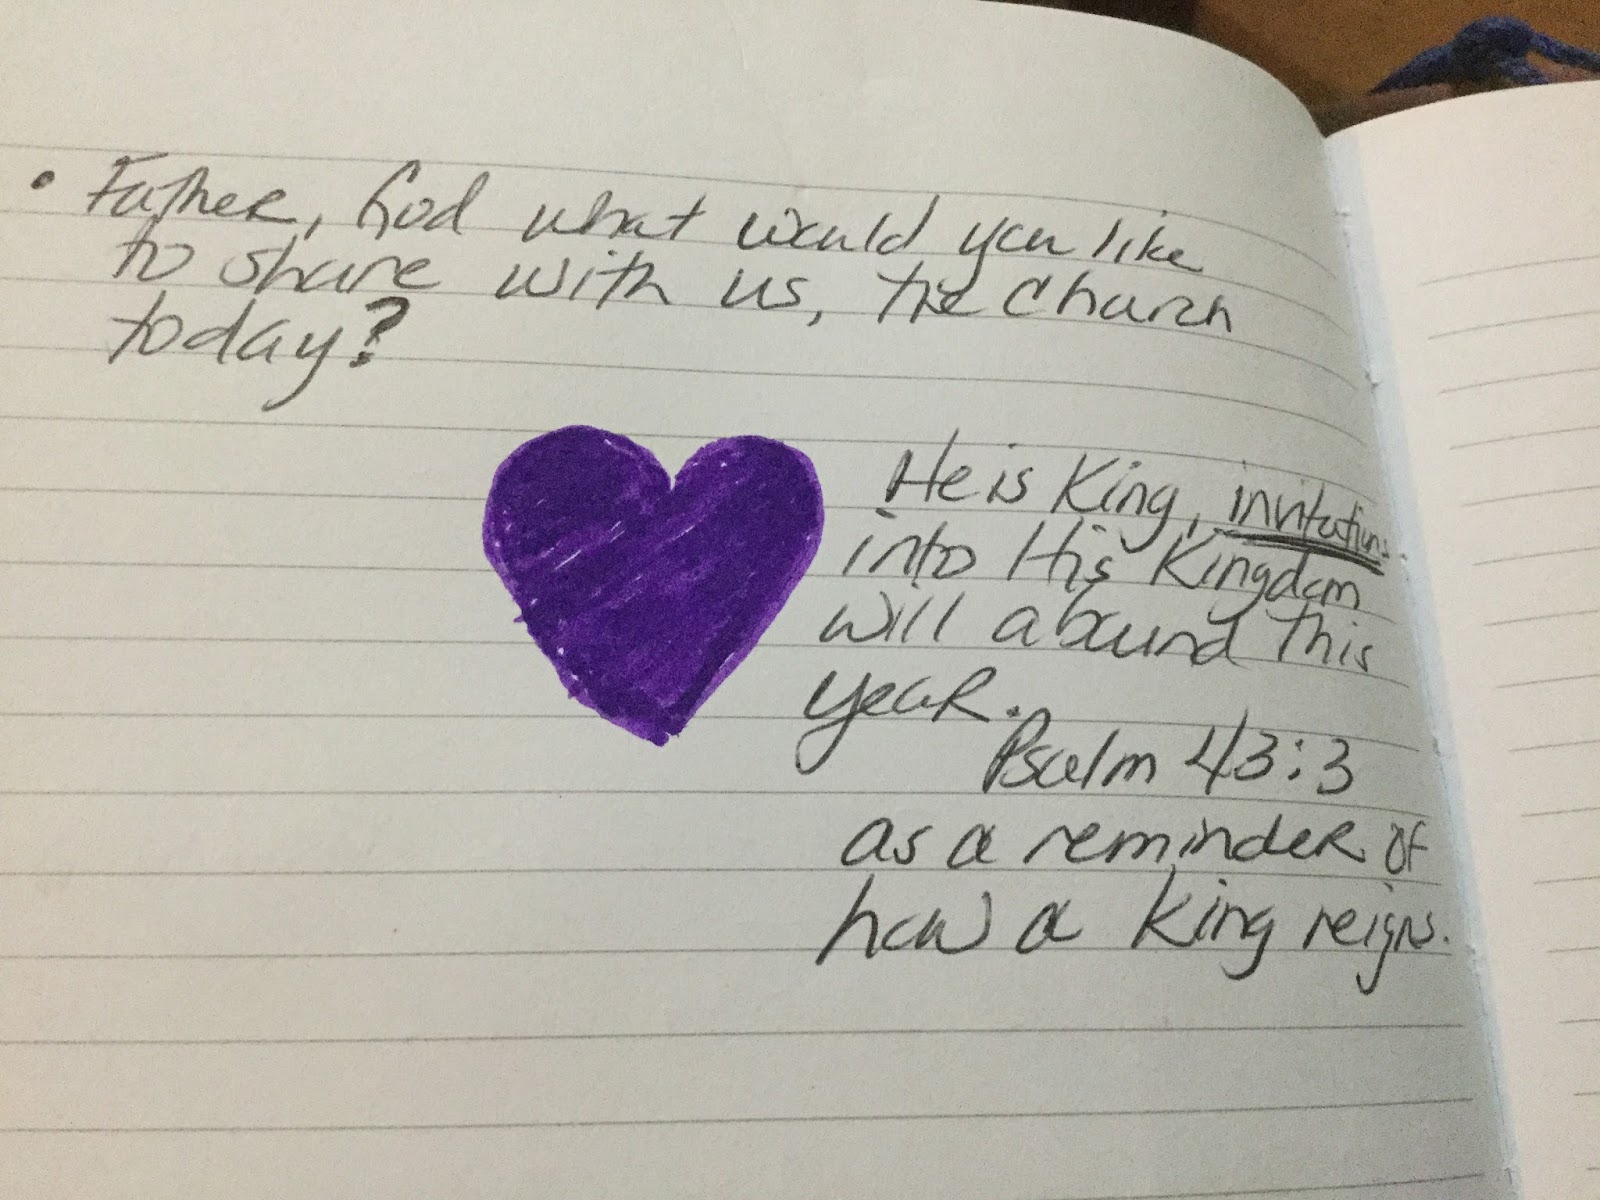 • Father, God what would you like
to share with us, the Church
today?
He is King, invitations
into His Kingdom
will abound this
year.
Psalm 43:3
as a reminder of
how a King reigns.